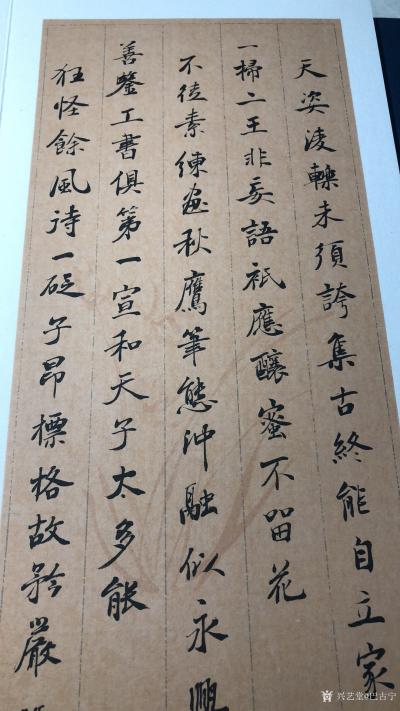 天姿淩轢未須誇集古終能自立家
一掃二王非妄語祇應釀蜜不留花
不徒素練畫秋鷹筆態沖融似永興
善鑒工書俱第一宣和天子太多能
狂怪餘風待一砭子昂標格故矜嚴
兴艺堂@巴古宁